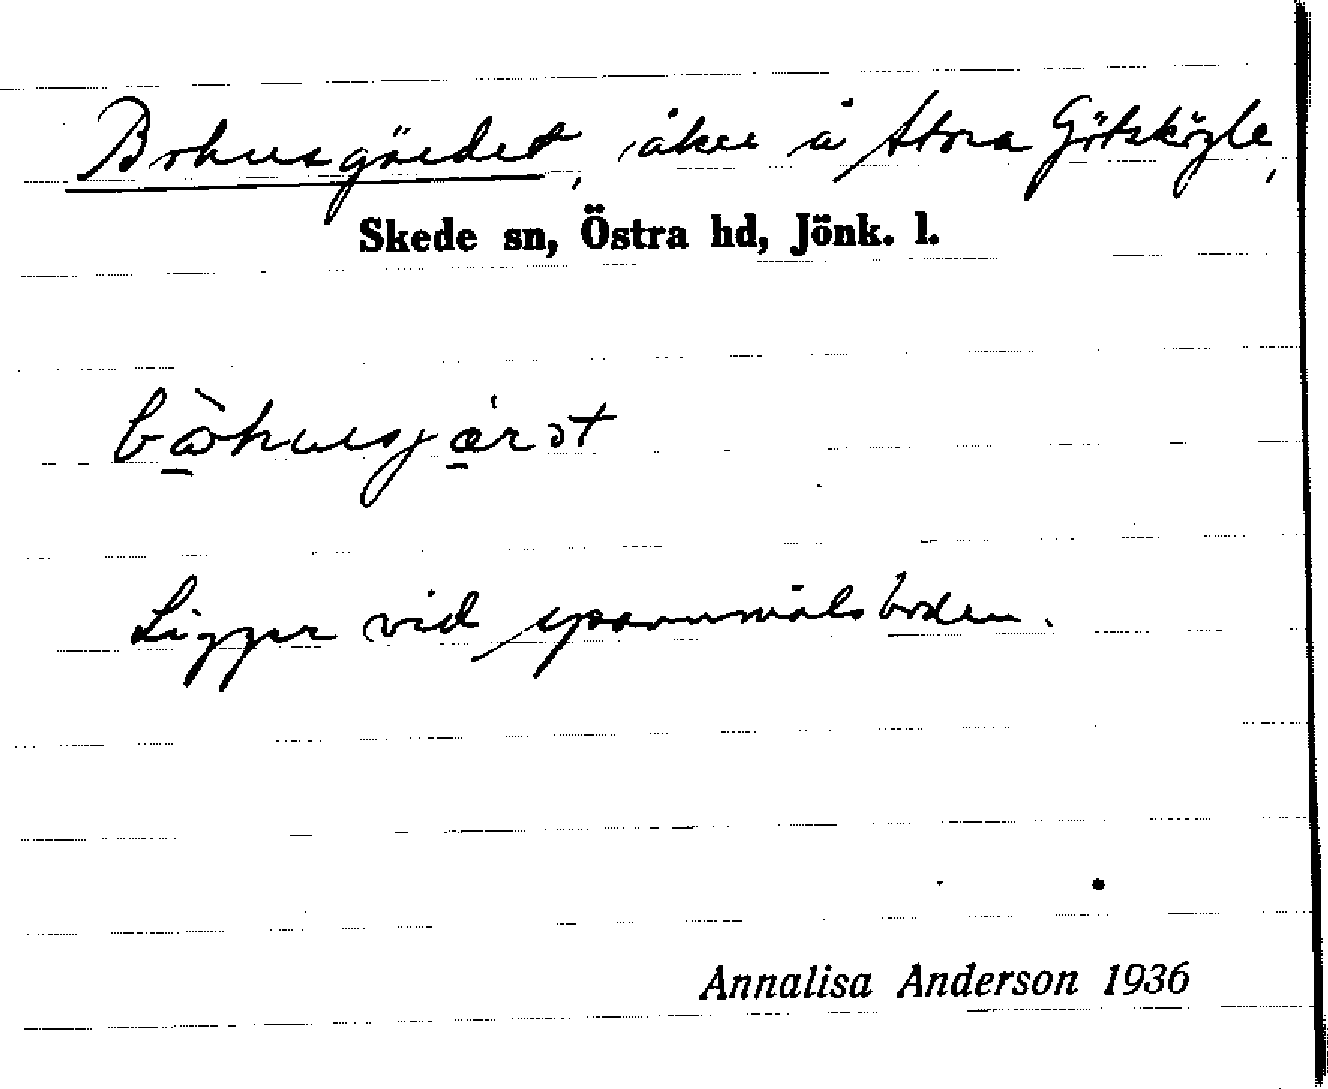 Bohusgärdet, åker å Stora Götskögle,
Skede sn, Östra hd, Jönk. l.
Ligger vid spannmålsboden.
Annalisa Anderson 1936